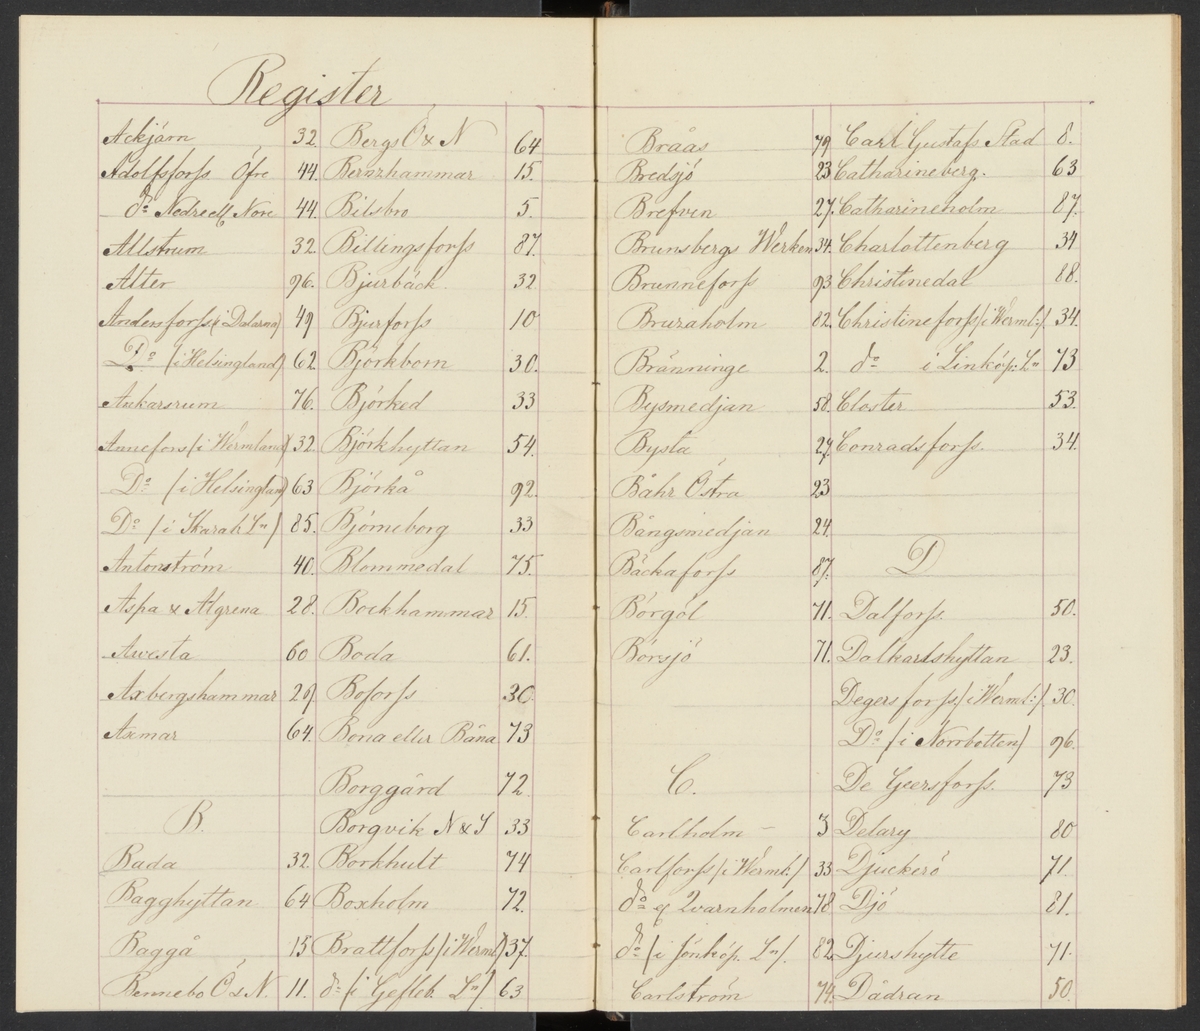 Register
Ackjärn 32.
Adolfsforss Öfre 44.
do Nedre ell Nore 44.
Allstrum 32.
Alter 96.
Andersforss (i Dalarna) 49
Do (i Helsingland) 62
Ankarsrum 76.
Annefors (i Wermland) 32
Do (i Helsingland) 63
Do / i Skarab. Ln / 85.
Antonström 40.
Aspa & Algrena 28.
Awesta 60
Axbergshammar 29
Axmar 64.
B.
Bada 32.
Bagghyttan 64
Baggå 15
Bennebo Ö & N. 11.
Bergs Ö & N 64
Bernzhammar 15.
Bilsbro 5.
Billingsforss 87.
Bjurbäck 32
Bjurforss 10
Björkborn 30.
Björked 33
Björkhyttan 54.
Björkå 92.
Björneborg 33
Blommedal 75.
Bockhammar 15.
Boda 61.
Boforss 30
Bona eller Båna 73
Borggård 72
Borgvik N & S 33
Borkhult 74
Boxholm 72.
Brattforss / i Werml. / 37.
do / i Gefleb. Ln / 63
Braås 79
Bredsjö 23
Brefven 27.
Brunsbergs Werken 34.
Brunneforss 93
Bruzaholm 82.
Bränninge 2.
Bysmedjan 58.
Bysta 27.
Båhr Östra 23
Bångsmedjan 24.
Bäckaforss 87.
Börgöl 71.
Börsjö 71.
C.
Carlholm — 3
Carlforss / i Werml: / 33
do ej Qvarnholmen 78
do / i Jönköp. Ln /. 82
Carlström 74.
Carl Gustafs Stad 8.
Catharineberg. 63
Catharineholm 87.
Charlottenberg 34
Christinedal 88.
Christineforss / i Werml: /. 34.
do i Linköp: Ln 73
Closter 53.
Conradsforss. 34.
D
Dalforss. 50.
Dalkarlshyttan 23.
Degersforss / i Werml: /. 30.
Do / i Norrbotten / 96.
De Geersforss. 73
Delary 80
Djuckerö 71.
Djö 81.
Djurshytte 71.
Dådran 50.